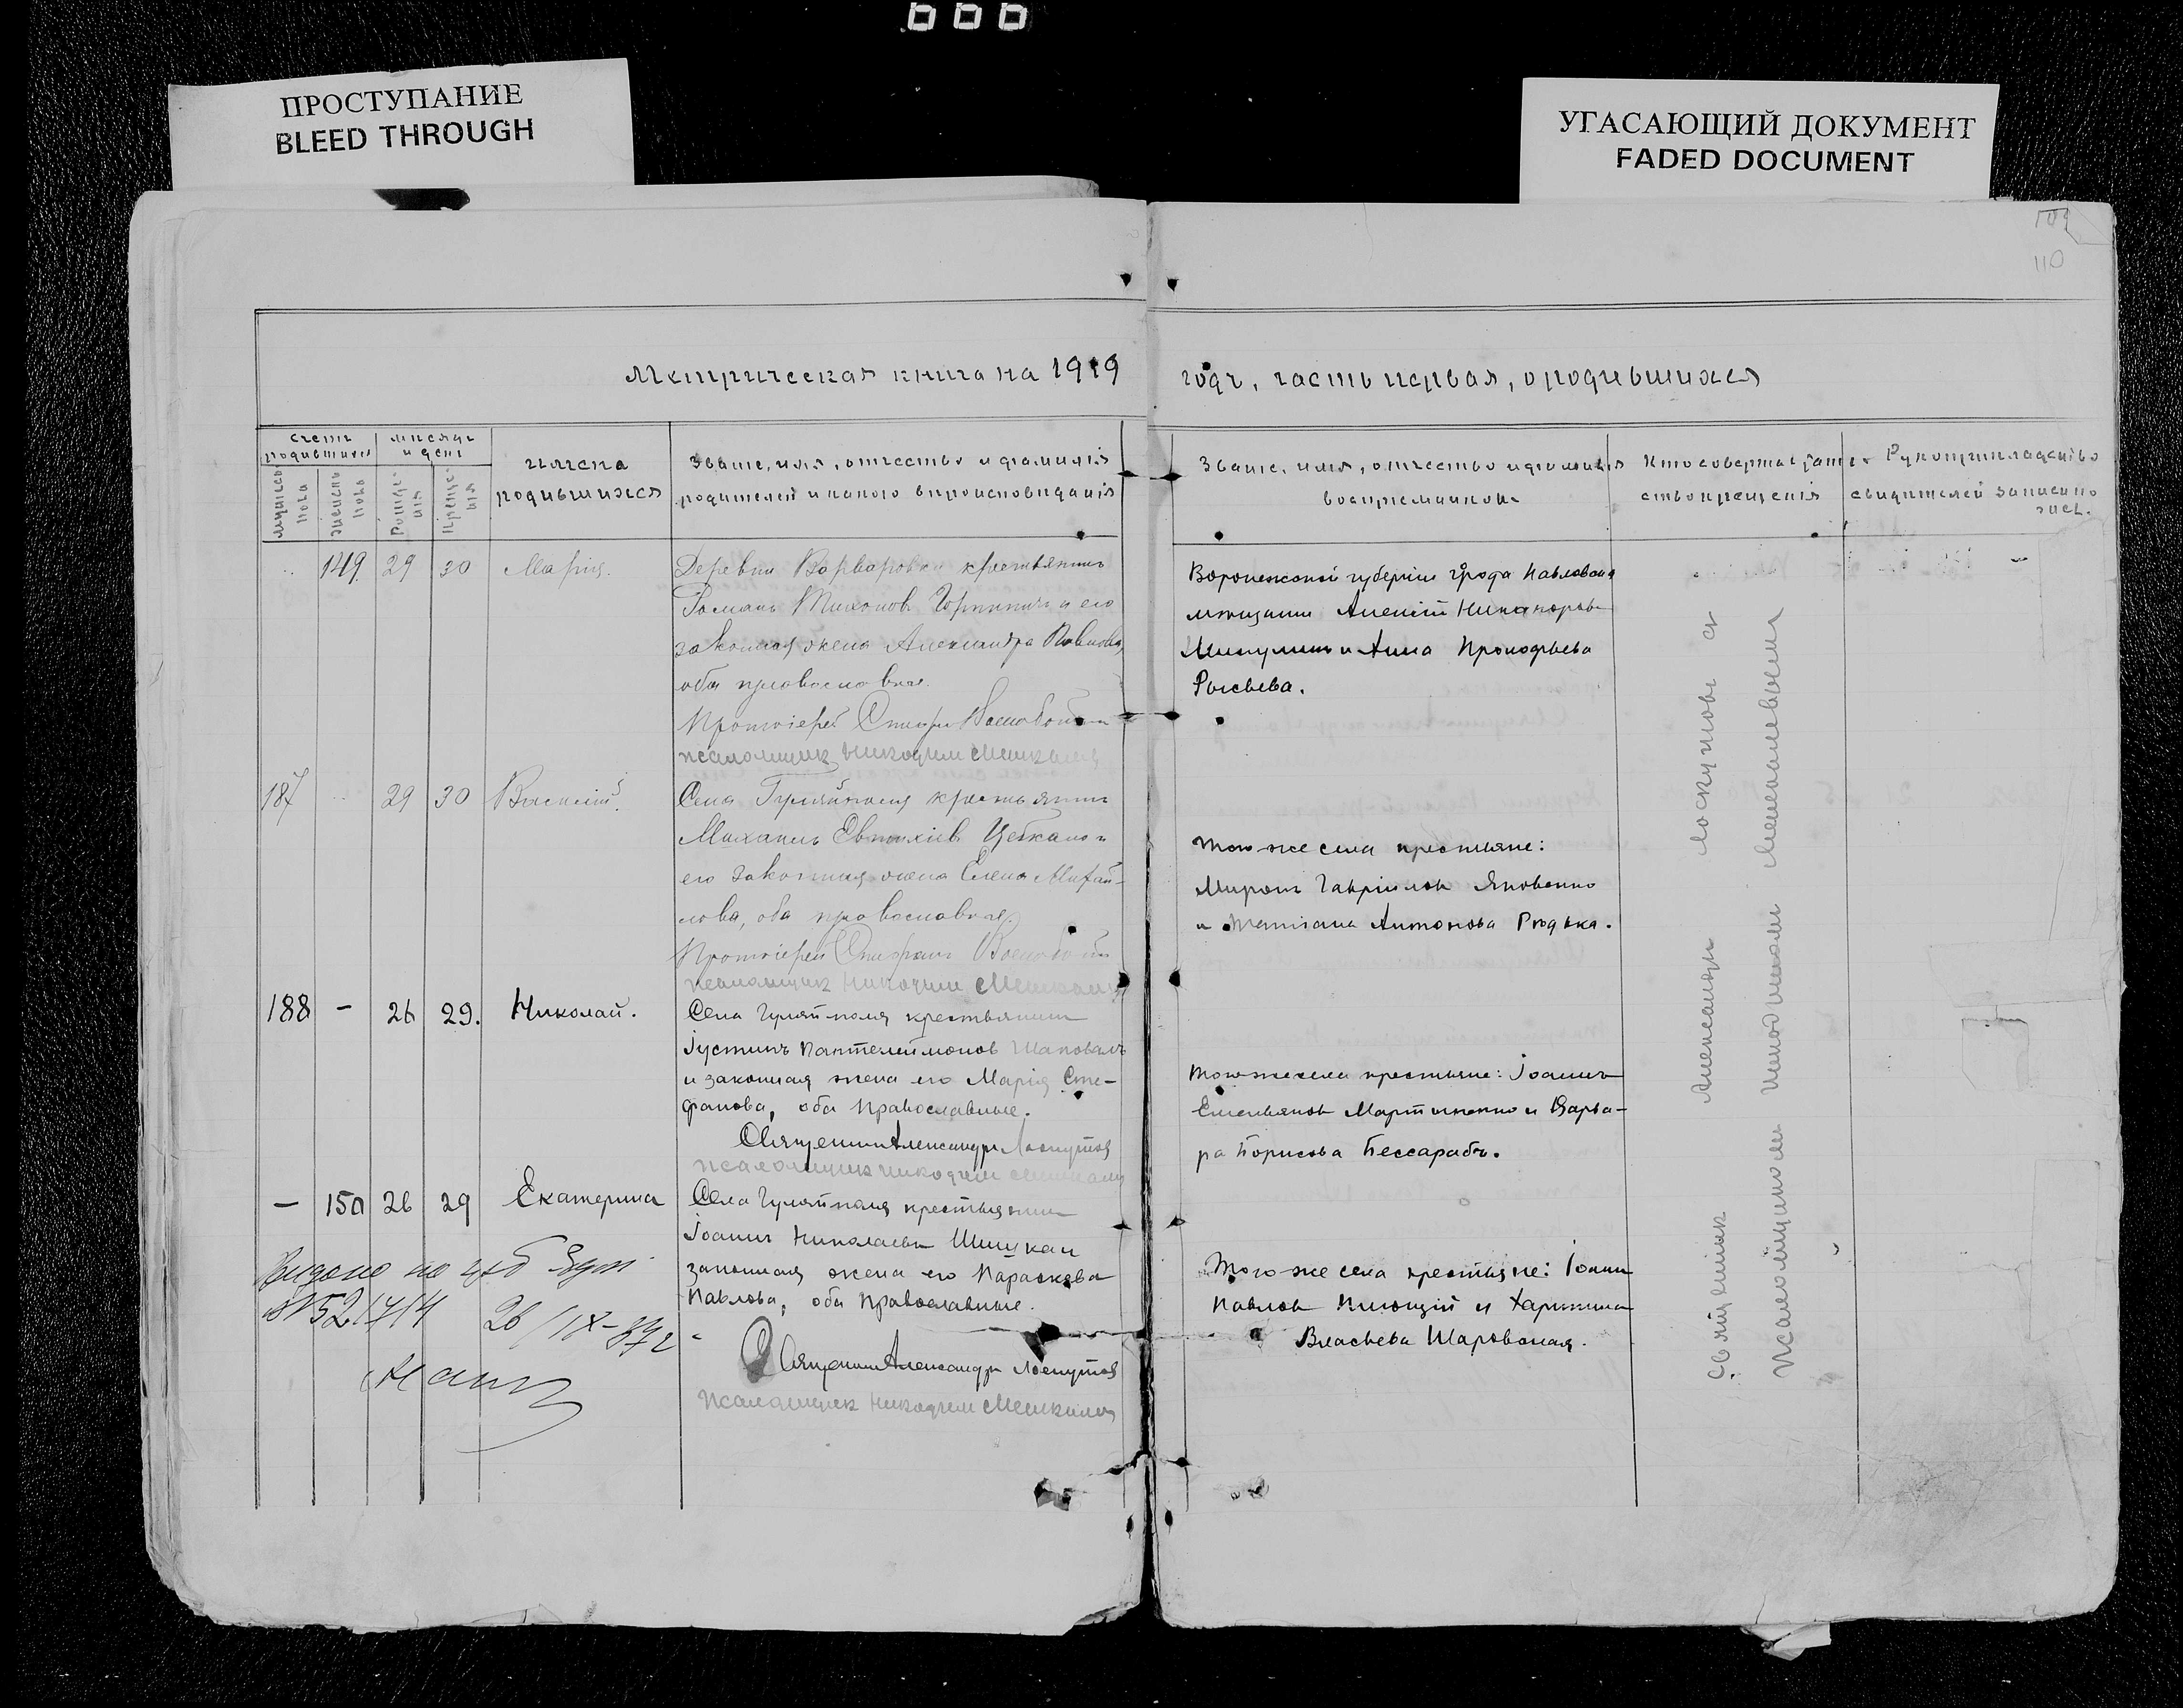 666
ПРОСТУПАНИЕ
BLEED THROUGH
УГАСАЮЩИЙ ДОКУМЕНТ
FADED DOCUMENT
109
110
Метрическая книга на 1919
годъ, часть первая, о родившихся
счетъ родившихся
мѣсяцъ и день
мужеска пола
женска пола
Рожде-
ния
Креще-
ния
имена
родившихся
Званіе, имя, отчество и фамилія
родителей и какого вѣроисповѣданія
Званіе, имя, отчество и фамилія
воспріемниковъ
Кто совершалъ таин-
ство крещенія
Рукоприкладство
свидѣтелей записи по
149 29 30 Марія.
Деревни Варваровки крестьянинъ
Романъ Тихоновъ и его
законная жена Александра Павлова,
оба православные.
Протоіерей Стефанъ
псаломщикъ Никодимъ
Воронежской губерніи города Павловска
мѣщане Алексѣй Никаноровъ
и Анна Прокофьева
Рысьева.
187 29 30 Василій.
Села Гуляйполя крестьянинъ
Михаилъ Евтихіевъ Цебкало и
его законная жена Елена Михай-
лова, оба православные.
Протоіерей Стефанъ
псаломщикъ Никодимъ
Того же села крестьяне:
Миронъ Гавріиловъ Яковенко
и Татіана Антонова Рядька.
188 - 26 29. Николай.
Села Гуляйполя крестьянинъ
Іустинъ Пантелеймоновъ Шаповалъ
и законная жена его Марія Сте-
фанова, оба православные.
Священникъ Александръ Лоскутовъ
псаломщикъ Никодимъ
Того же села крестьяне: Іоаннъ
Емельяновъ Мартыненко и Варва-
ра Борисова Бессарабъ.
- 150 26 29 Екатерина
Села Гуляйполя крестьянинъ
Іоаннъ Николаевъ Шишкан
законная жена его Параскева
Павлова, оба православные.
Священникъ Александръ Лоскутовъ
псаломщикъ Никодимъ
Того же села крестьяне: Іоаннъ
Павловъ и Харитина
Власьева Шаровская.
Видано
№ 521714 26/IX-
Священникъ Александръ Лоскутовъ съ
Псаломщикомъ Никодимомъ